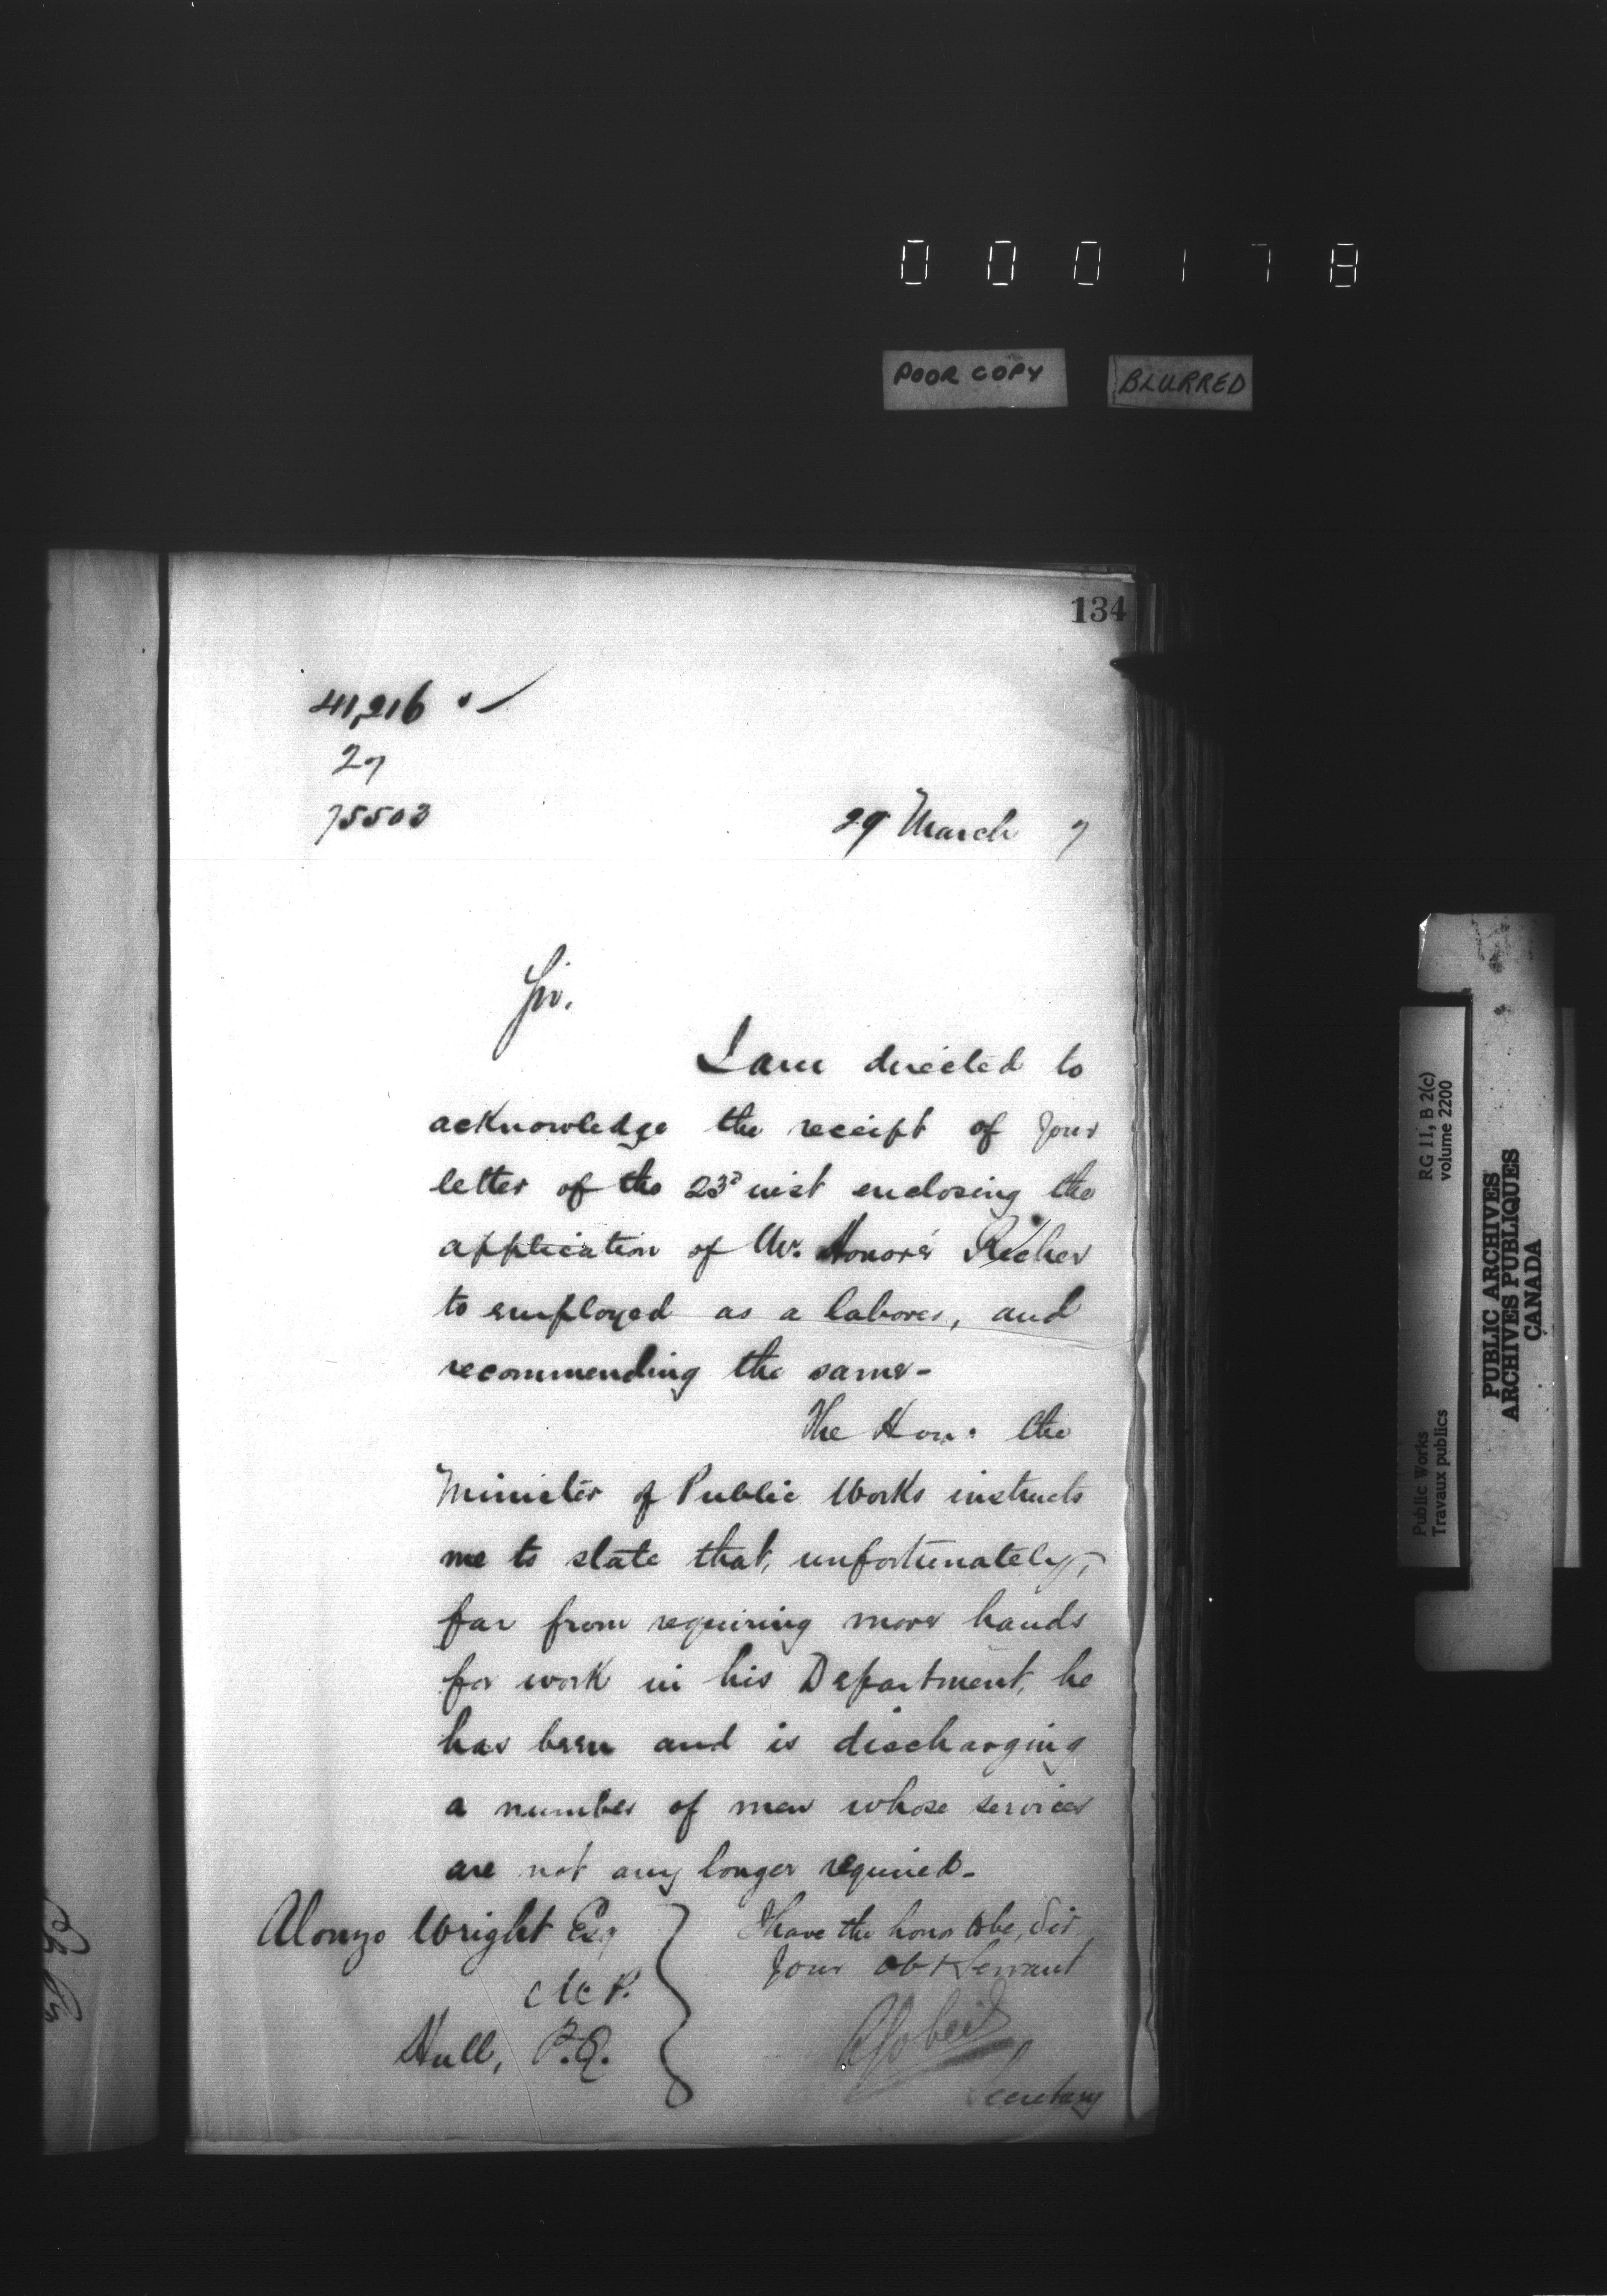 000178
POOR COPY
BLURRED
134
41,216
27
75503
29 March 7
Sir.
I am directed to
acknowledge the receipt of your
letter of the 23d inst enclosing the
application of Mr. Honoré Richer
to employed as a laborer, and
recommending the same-
The Hon: the
Minister of Public Works instructs
me to state that, unfortunately,
far from requiring more hands
for work in his Department, he
has been and is discharging
a number of men whose services
are not any longer required-
Alonzo Wright Esq
M.P.
Hull, P.Q.
I have the honor to be, Sir
Your obt Servant
A Gobeil
Secretary
RG 11, B 2(c)
volume 2200
Public Works
Travaux publics
PUBLIC ARCHIVES
ARCHIVES PUBLIQUES
CANADA